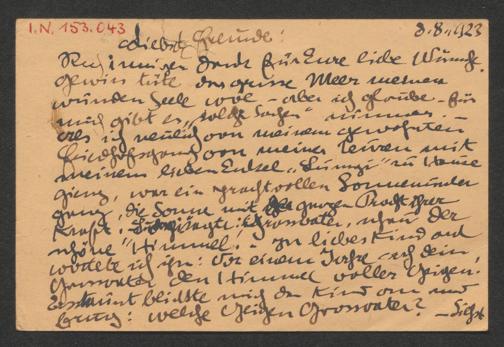 I.N. 153.043
8.8.1923
Liebste Freunde:
innigen Dank für Eure liebe Wünsche.
gewiss täte das grüne Meer meiner
wunden Seele wol – aber ich glaube – für
mich gibt es „solche Sachen" nimmer –
als ich neulich von meinem gewohnten
Friedhofsgang von meiner Teuren mit
meinem lieben Enkel „ " zu Hause
gieng, war ein prachtvoller Sonnenunter
gang, die Sonne mit ganzer Pracht ihrer
Kraft: sagte: Grossvater, schau der
schöne „Himmel! – liebes Kind ant
wortete ich ihm: Vor einem Jahre – sah dein
Grossvater den Himmel voller Geigen.
Erstaunt blickte mich das Kind an und
frug: welche Geigen Grossvater? –